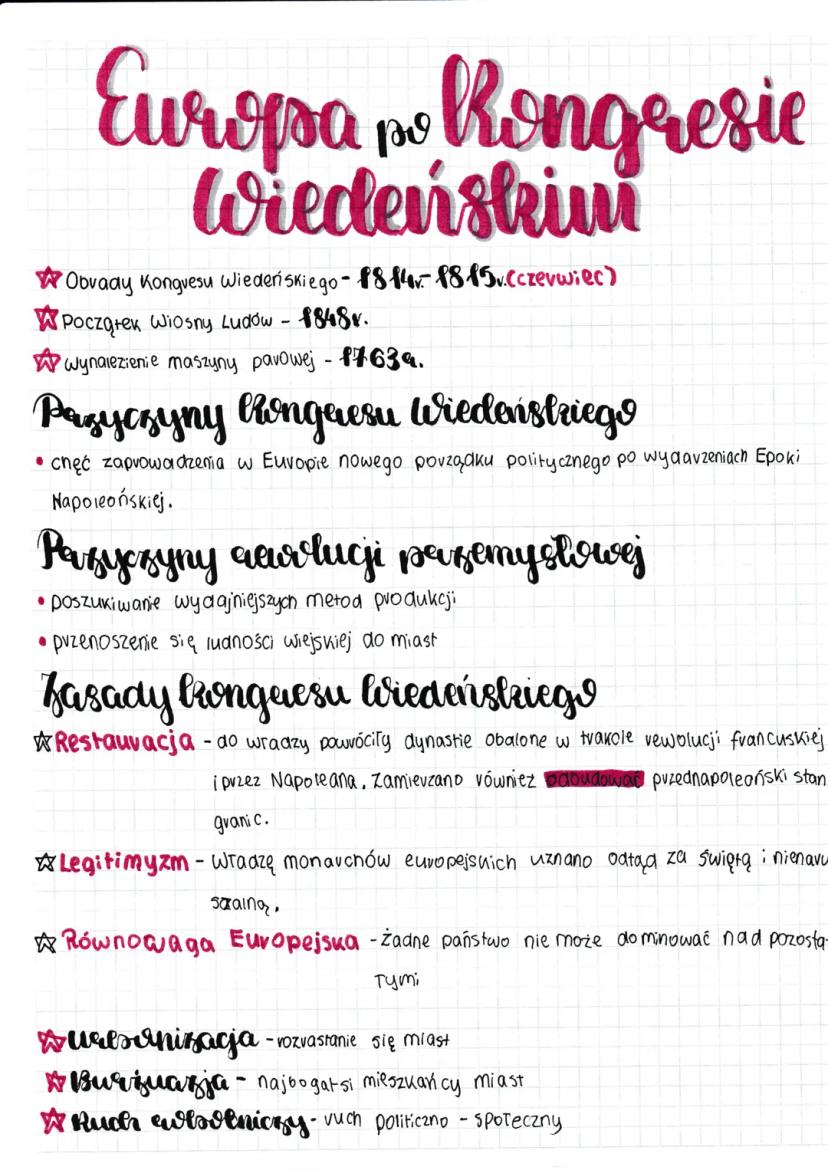 Europa po Kongresie
Wiedeńskim
Obrady Kongresu Wiedeńskiego - 1814r. - 1815r. (czerwiec)
Początek Wiosny Ludów - 1848r.
Wynalezienie maszyny parowej - 1763r.
Przyczyny Kongresu Wiedeńskiego
• chęć zaprowadzenia w Europie nowego porządku politycznego po wydarzeniach Epoki
Napoleońskiej.
Przyczyny rewolucji przemysłowej
• poszukiwanie wydajniejszych metod produkcji
• przenoszenie się ludności wiejskiej do miast
Zasady Kongresu Wiedeńskiego
Restauracja - do władzy powróciły dynastie obalone w trakcie rewolucji francuskiej
i przez Napoleona. Zamierzano również odbudować przednapoleoński stan
granic.
Legitimyzm - władzę monarchów europejskich uznano odtąd za świętą i nienaru
szalną.
Równowaga Europejska - żadne państwo nie może dominować nad pozosta-
łymi
Urbanizacja - rozrastanie się miast
Burżuazja - najbogatsi mieszkańcy miast
Ruch robotniczy - ruch polityczno - społeczny